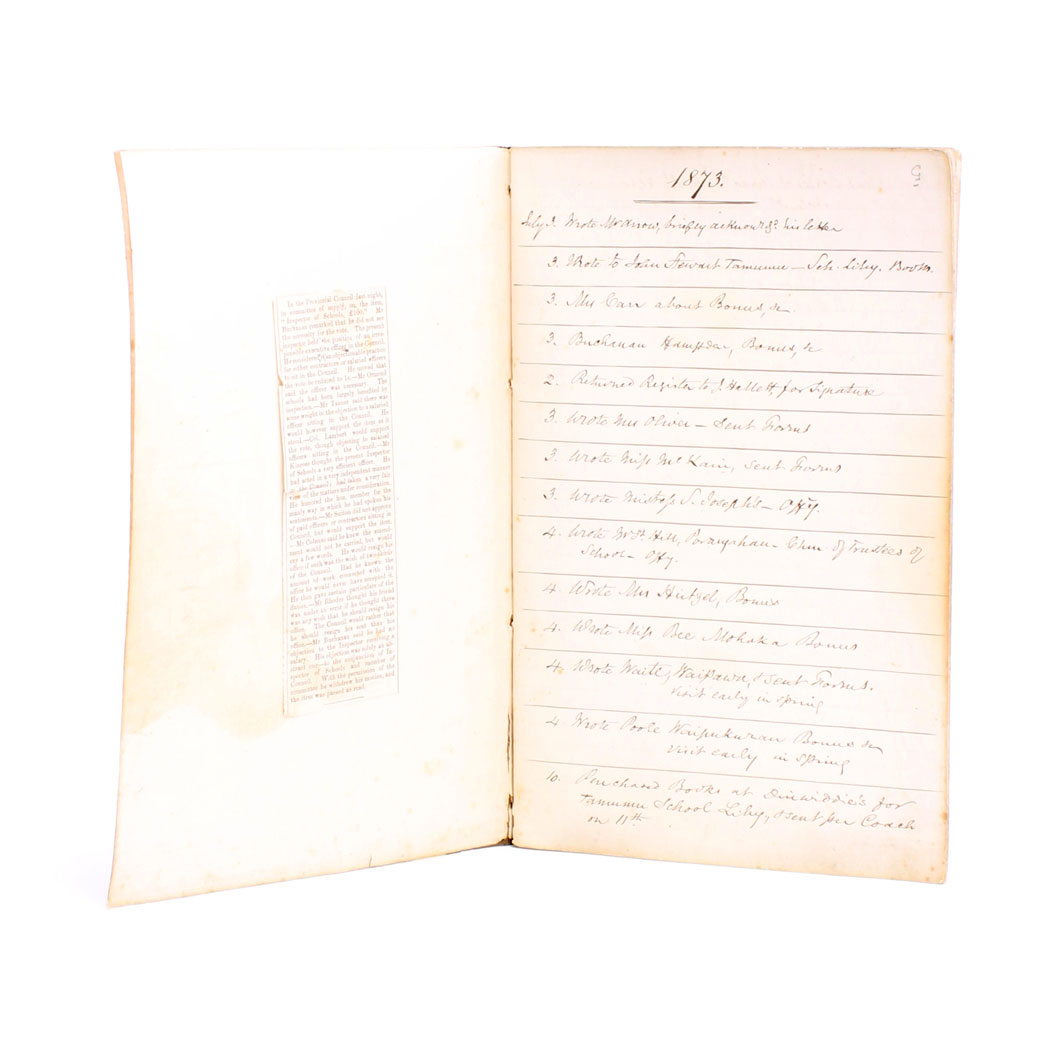 In the Provincial Council last night,
in committee of supply, on the item,
"Inspector of Schools, £150," Mr
Buchanan remarked that he did not see
the necessity for the vote. The present
inspector held the position of an
executive officer in the Council.
objectionable practice
for either contractors or salaried officers
to sit in the Council. He moved that
the vote be reduced to 1s.—Mr Ormond
said the officer was necessary. The
schools had been largely benefited by
inspection.—Mr Tanner said there was
some weight in the objection to a salaried
officer sitting in the Council. He
would however support the item as it
stood.—Col. Lambert would support
the vote, though objecting to salaried
officers sitting in the Council.—Mr
Kinross thought the present Inspector
of Schools a very efficient officer. He
had acted in a very independent manner
in the Council; had taken a very fair
view of the matters under consideration.
He honored the hon. member for the
manly way in which he had spoken his
sentiments.—Mr Sutton did not approve
of paid officers or contractors sitting in
Council, but would support the item.
—Mr Colenso said he knew the amend-
ment would not be carried, but would
say a few words. He would resign his
office if such was the wish of
of the Council. Had he known the
amount of work connected with the
office he would never have accepted it.
He then gave certain particulars of the
duties.—Mr Rhodes thought his friend
was under an error if he thought there
was any wish that he should resign his
office. The Council would rather that
he should resign his seat than his
office.—Mr Buchanan said he had no
objection to the Inspector receiving a
salary. His objection was solely an ab-
stract one—the conjunction of In-
spector of Schools and member of
Council. With the permission of the
committee he withdrew his motion, and
the item was passed as read.
1873.
July 3. Wrote Mr Arrow, briefly acknowg. his letter
3. Wrote to John Stewart Tamumu — Sch. Liby. Books.
3. Mrs Carr about Bonus, &c.
3. Buchanan Hampden, Bonus, &c
2. Returned Register to J. Hallett, for Signature
3. Wrote Mrs Oliver — sent Forms
3. Wrote Miss McKain, sent Forms
3. Wrote Mistress S. Joseph's — Offy.
4. Wrote Hill, Porangahau — Chm. of Trustees of
School — Offy.
4. Wrote Mrs Hutzel, Bonus
4. Wrote Miss Bee Mohaka Bonus
4. Wrote Waite, Waipawa, & sent Forms.
visit early in spring
4. Wrote Poole Waipukurau Bonus &c
visit early in spring
10. Purchased Books at Dinwiddie's for
Tamumu School Liby, & sent per Coach
on 11th